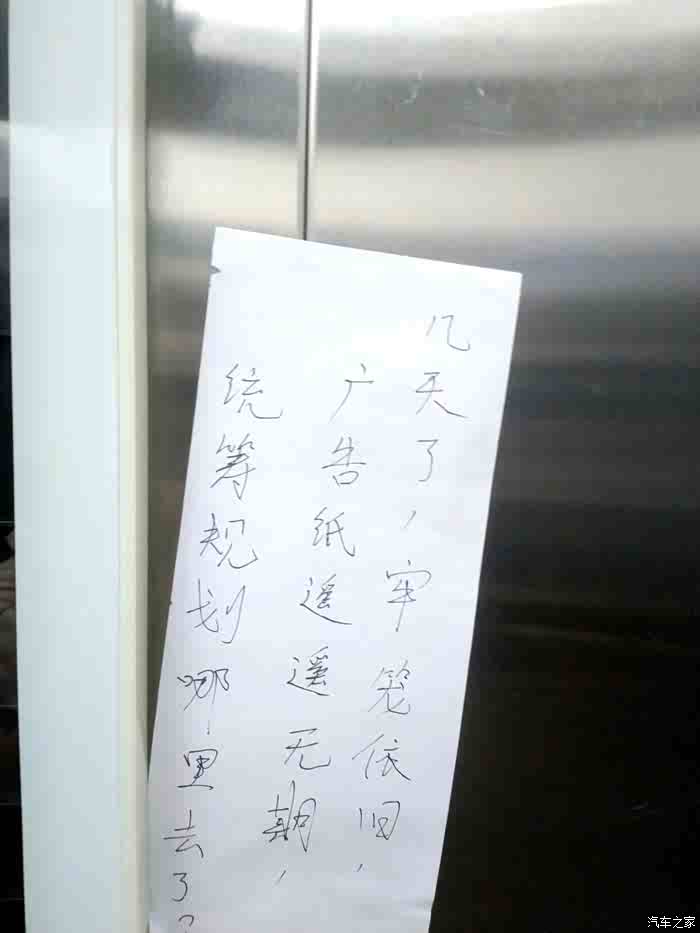 几天了，牢笼依旧，
广告纸遥遥无期，
统筹规划哪里去了?
汽车之家